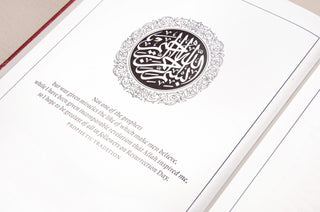 Not one of the prophets
but was given miracles the like of which make men believe,
while I have been given incomparable revelation that Allah inspired me,
so I hope to be greatest of all in followers on Resurrection Day.
PROPHETIC TRADITION